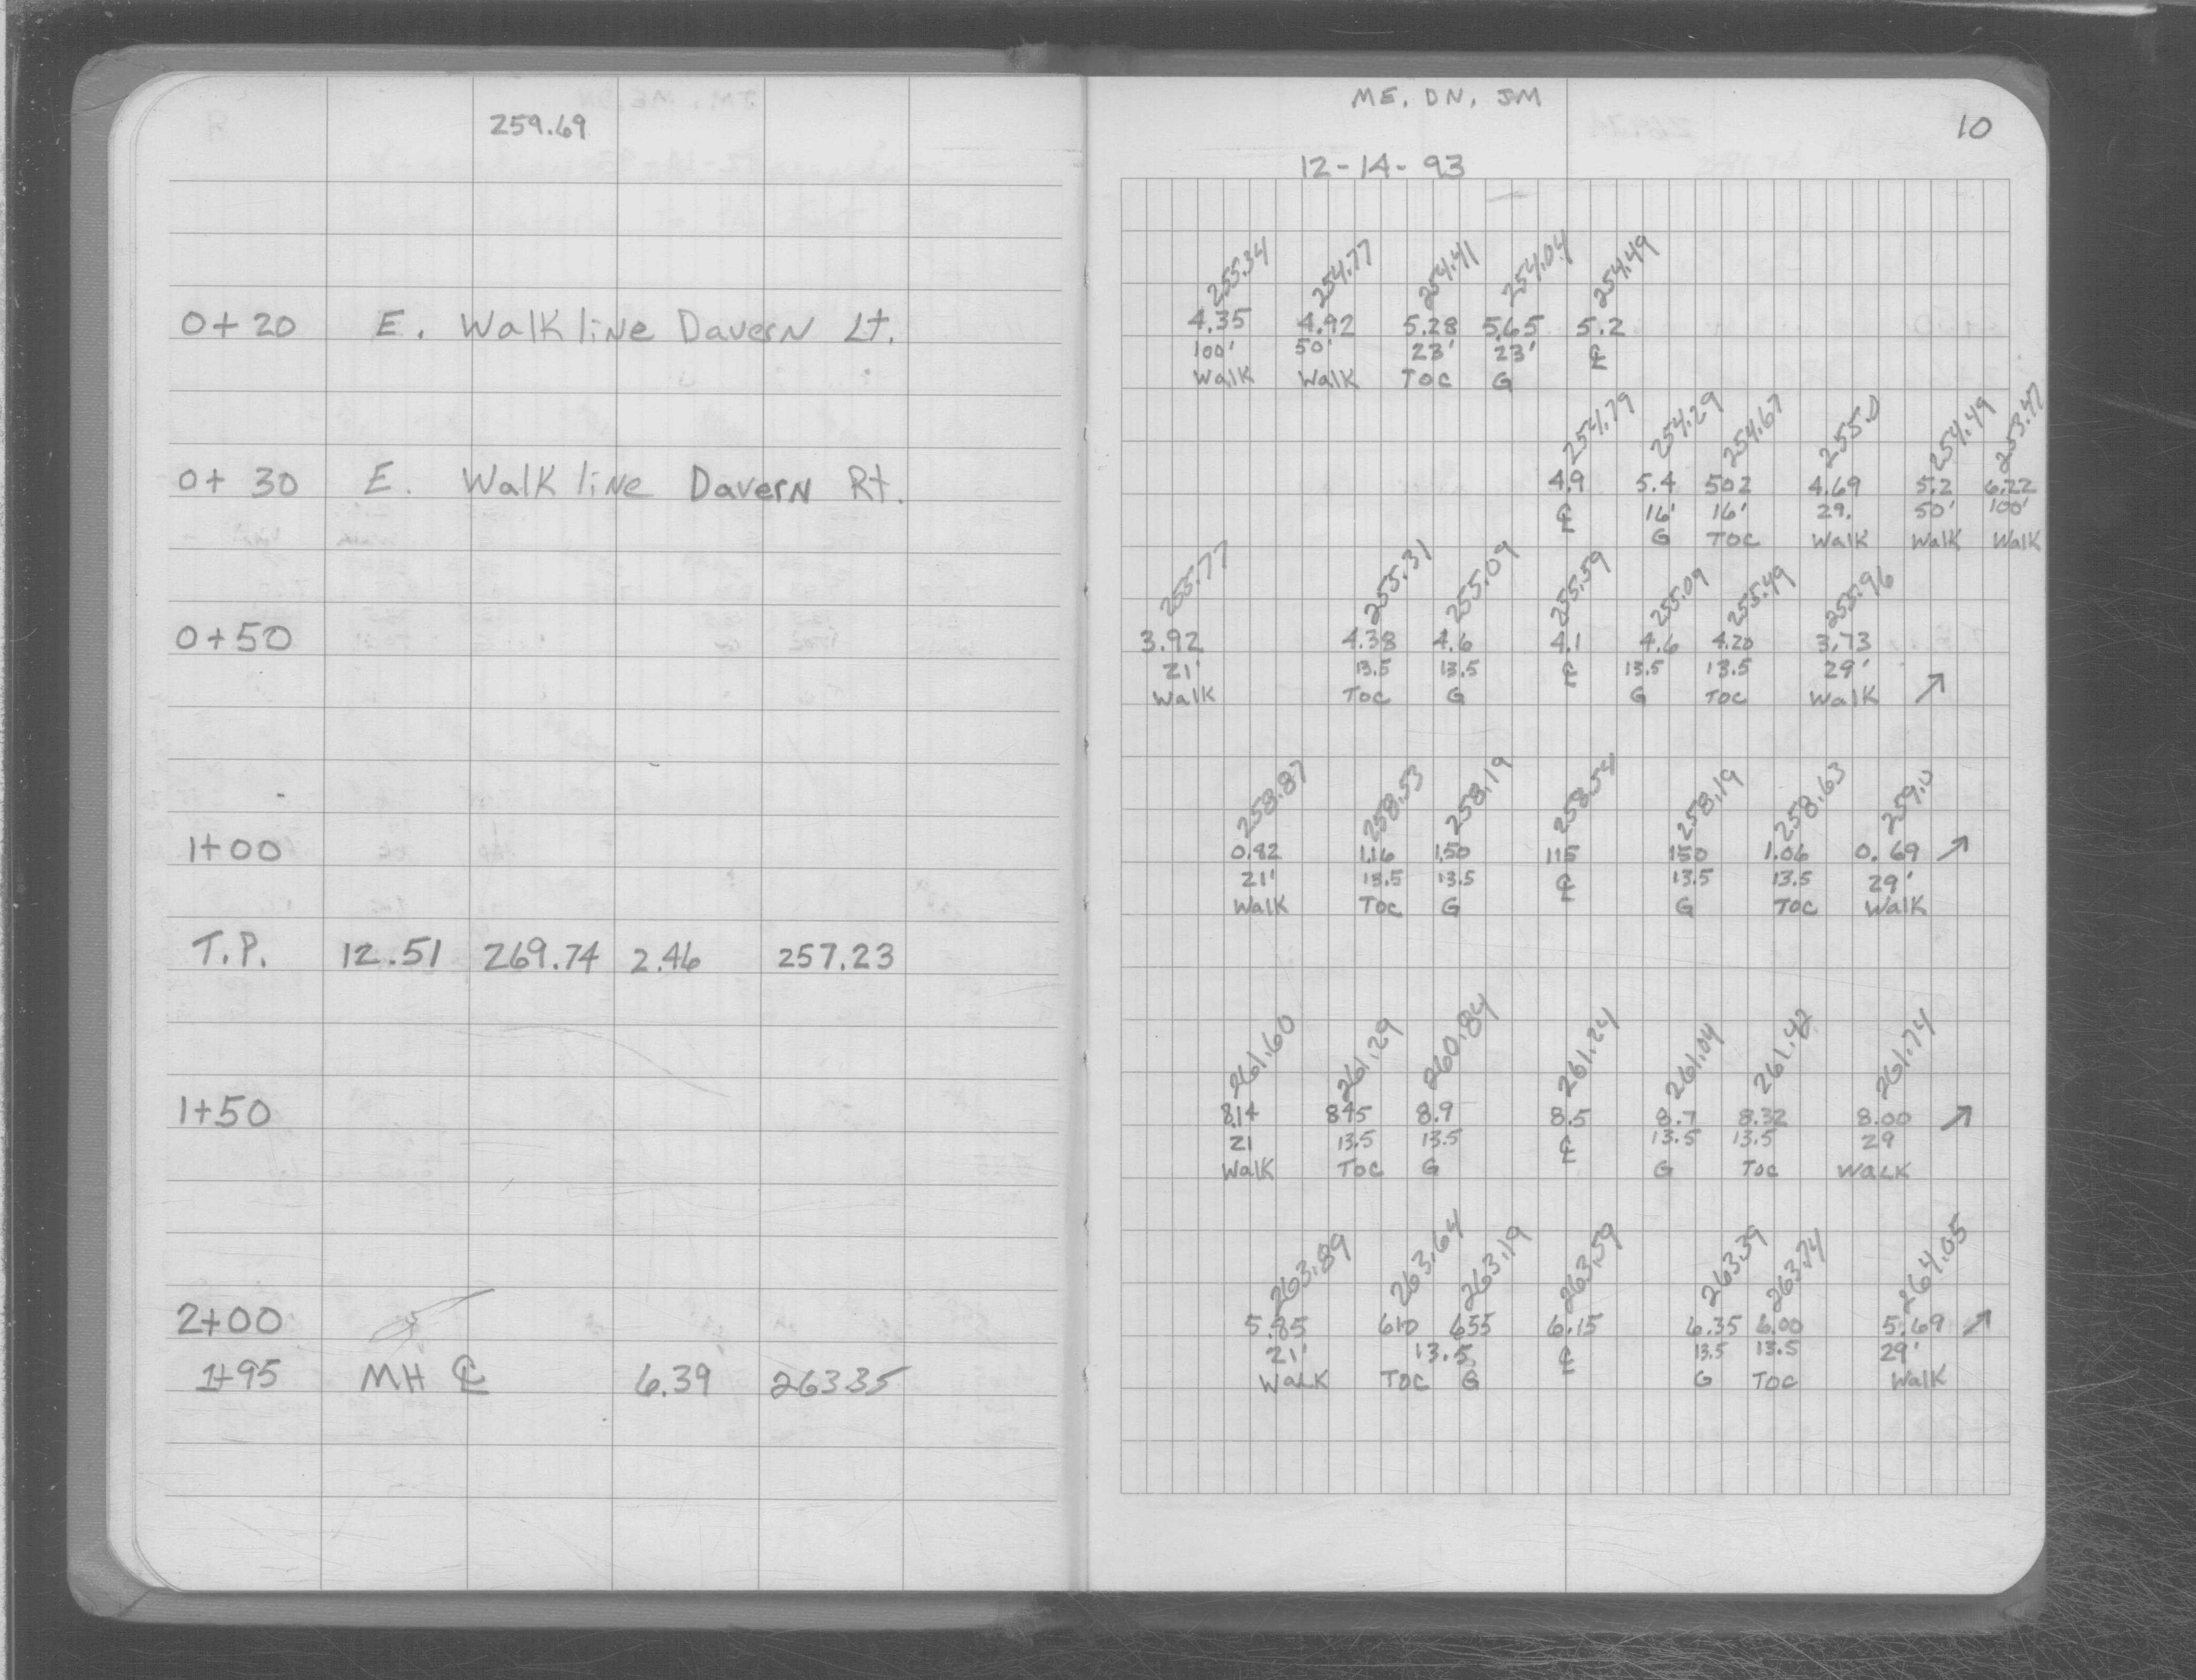 259.69
0+20 E. Walk line Davern Lt.
0+30 E. Walk line Davern Rt.
0+50
1+00
T.P. 12.51 269.74 2.46 257.23
1+50
2+00
1+95 MH ℄ 6.39 263.35
ME, DN, JM
10
12-14-93
255.34 254.77 254.41 254.04 254.49
4.35 4.92 5.28 5.65 5.2
100' 50' 23' 23' ℄
Walk Walk TOC G
254.79 254.29 254.67 255.0 254.49 253.47
4.9 5.4 502 4.69 5.2 6.22
℄ 16' 16' 29. 50' 100'
G TOC Walk Walk Walk
255.77 255.31 255.09 255.59 255.09 255.49 255.96
3.92 4.38 4.6 4.1 4.6 4.20 3.73
21' 13.5 13.5 ℄ 13.5 13.5 29'
Walk TOC G G TOC Walk ↗
258.87 258.53 258.19 258.54 258.19 258.63 259.0
0.82 1.16 1.50 115 150 1.06 0.69 ↗
21' 13.5 13.5 ℄ 13.5 13.5 29'
Walk TOC G G TOC Walk
261.60 261.29 260.84 261.24 261.04 261.42 261.74
8.14 845 8.9 8.5 8.7 8.32 8.00 ↗
21 13.5 13.5 ℄ 13.5 13.5 29
Walk TOC G G TOC WALK
263.89 263.64 263.19 263.59 263.39 263.74 264.05
5.85 610 655 6.15 6.35 6.00 5.69 ↗
21' 13.5 ℄ 13.5 13.5 29'
WALK TOC G G TOC Walk